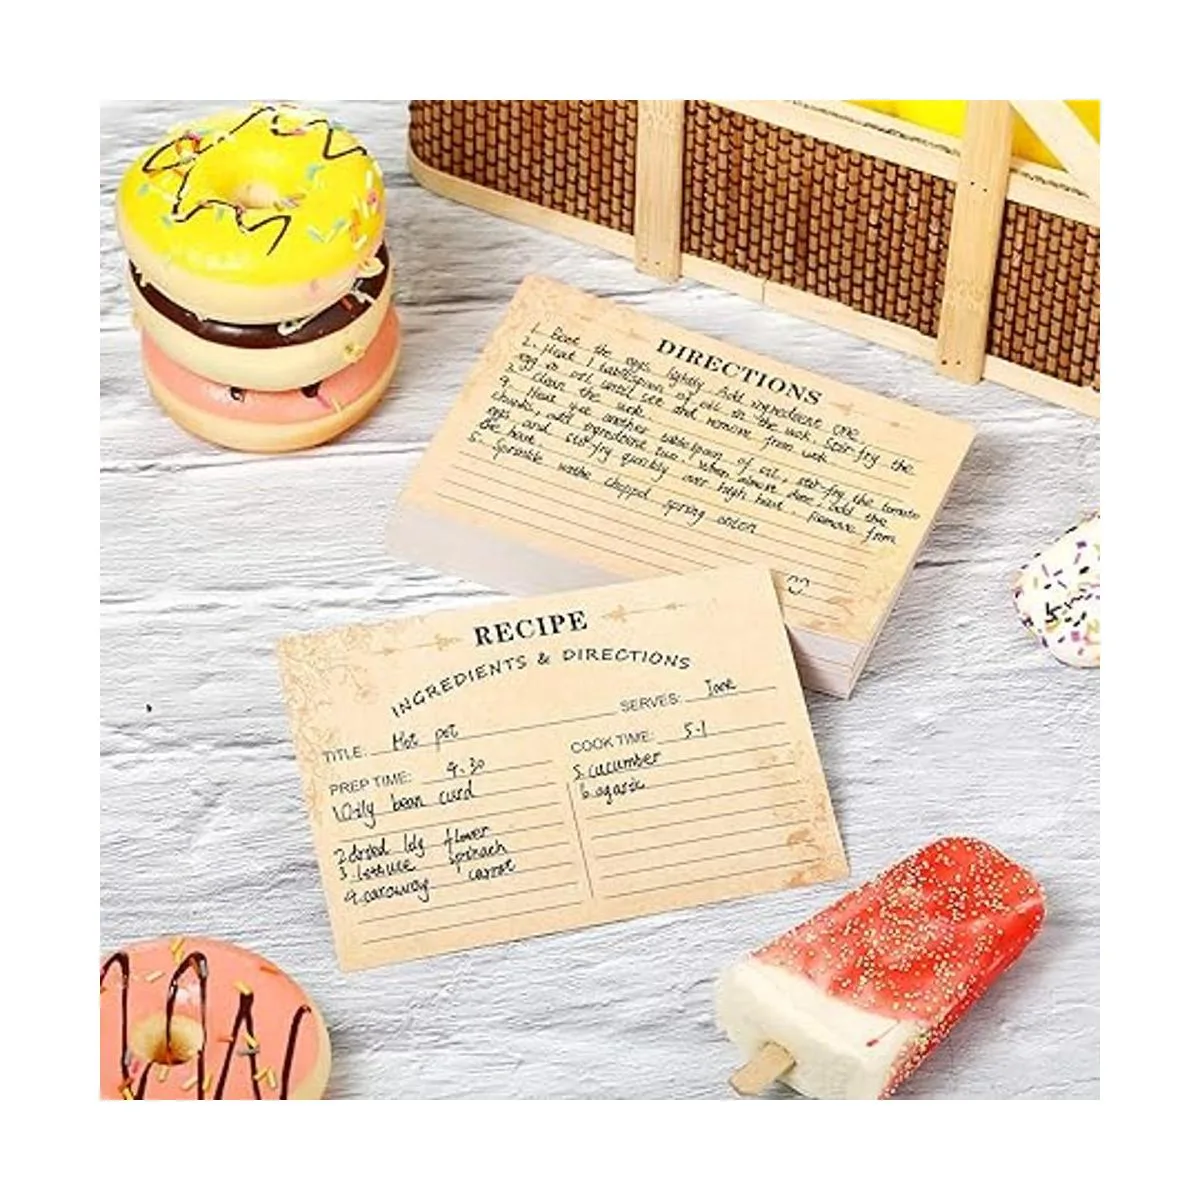 DIRECTIONS
1. Beat the eggs lightly Add ingredient one
2. Heat 1 tablespoon of oil in the wok. Stir-fry the
egg in oil until set and remove from wok
3. Clean the wok
4. Heat another tablespoon of oil, stir-fry the tomato
chunks, add ingredient two. When almost done, add the
eggs and stir-fry quickly over high heat. Remove from
the heat
5. Sprinkle withe chopped spring onion
RECIPE
INGREDIENTS & DIRECTIONS
TITLE: Hot pot SERVES: Jane
PREP TIME: 4.30 COOK TIME: 5-1
1 Oily bean curd
2 dried lily flower
3. lettuce spinach
4. caraway carrot
5. cucumber
6. agaric